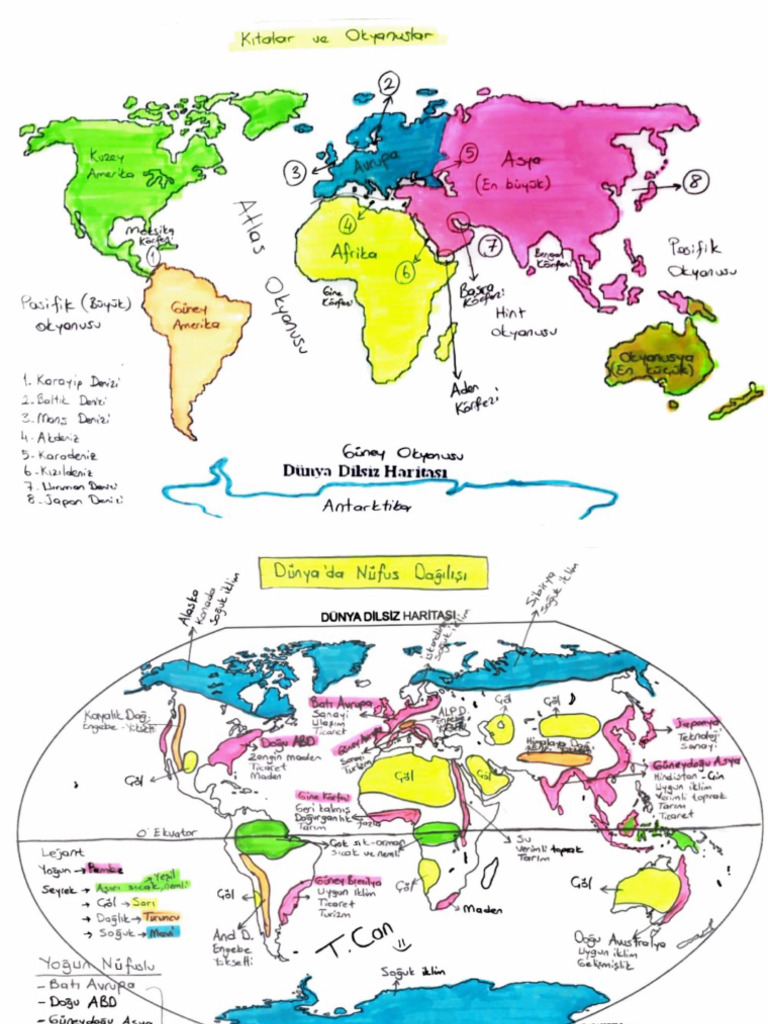 Kıtalar ve Okyanuslar
2
Kuzey
Amerika
Avrupa
3
5
Asya
(En büyük)
8
Meksika
Körfezi
1
Atlas Okyanusu
4
Afrika
6
7
Bengan
Körfezi
Pasifik
Okyanusu
Basra
Körfezi
Gine
Körfezi
Hint
Okyanusu
Pasifik (Büyük)
okyanusu
Güney
Amerika
Okyanusya
(En küçük)
Aden
Körfezi
1. Karayip Denizi
2. Baltık Denizi
3. Manş Denizi
4- Akdeniz
5- Karadeniz
6- Kızıldeniz
7- Umman Denizi
8- Japon Denizi
Güney Okyanusu
Dünya Dilsiz Haritası
Antarktika
Dünya'da Nüfus Dağılışı
DÜNYA DİLSİZ HARİTASI
Alaska
Kanada
Soğuk iklim
Sibirya
soğuk iklim
soğuk iklim
Kayalık Dağ.
Engebe - Yükselti
Batı Avrupa
Sanayi
Ulaşım
Ticaret
ALP D.
Engebe
Çöl
Çöl
Japonya
Teknoloji
Sanayi
Doğu ABD
Zengin maden
Ticaret
Maden
Güney Avrupa
Sanayi
Turizm
Güneydoğu Asya
Hindistan - Çin
Uygun iklim
Verimli toprak
Tarım
Ticaret
Çöl
Çöl
Çöl
Gine Körfezi
Geri kalmış
Doğurganlık fazla
Tarım
0° Ekvator
Çok sık-orman
Sıcak ve nemli
Su
Verimli toprak
Tarım
Lejant
Yoğun → Pembe
Seyrek → Aşırı sıcak, nemli → Yeşil
→ Çöl → Sarı
→ Dağlık → Turuncu
→ Soğuk → Mavi
Çöl
Güney Brezilya
Uygun iklim
Ticaret
Turizm
Çöl
Maden
Çöl
And D.
Engebe
Yükselti
T. Can
Doğu Avustralya
Uygun iklim
Gelişmişlik
Soğuk iklim
Yoğun Nüfuslu
- Batı Avrupa
- Doğu ABD
- Güneydoğu Asya